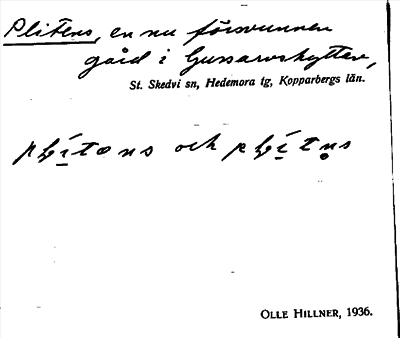 Plitens, en nu försvunnen
gård i Gussarvshyttan,
St. Skedvi sn, Hedemora tg, Kopparbergs län.
och
OLLE HILLNER, 1936.